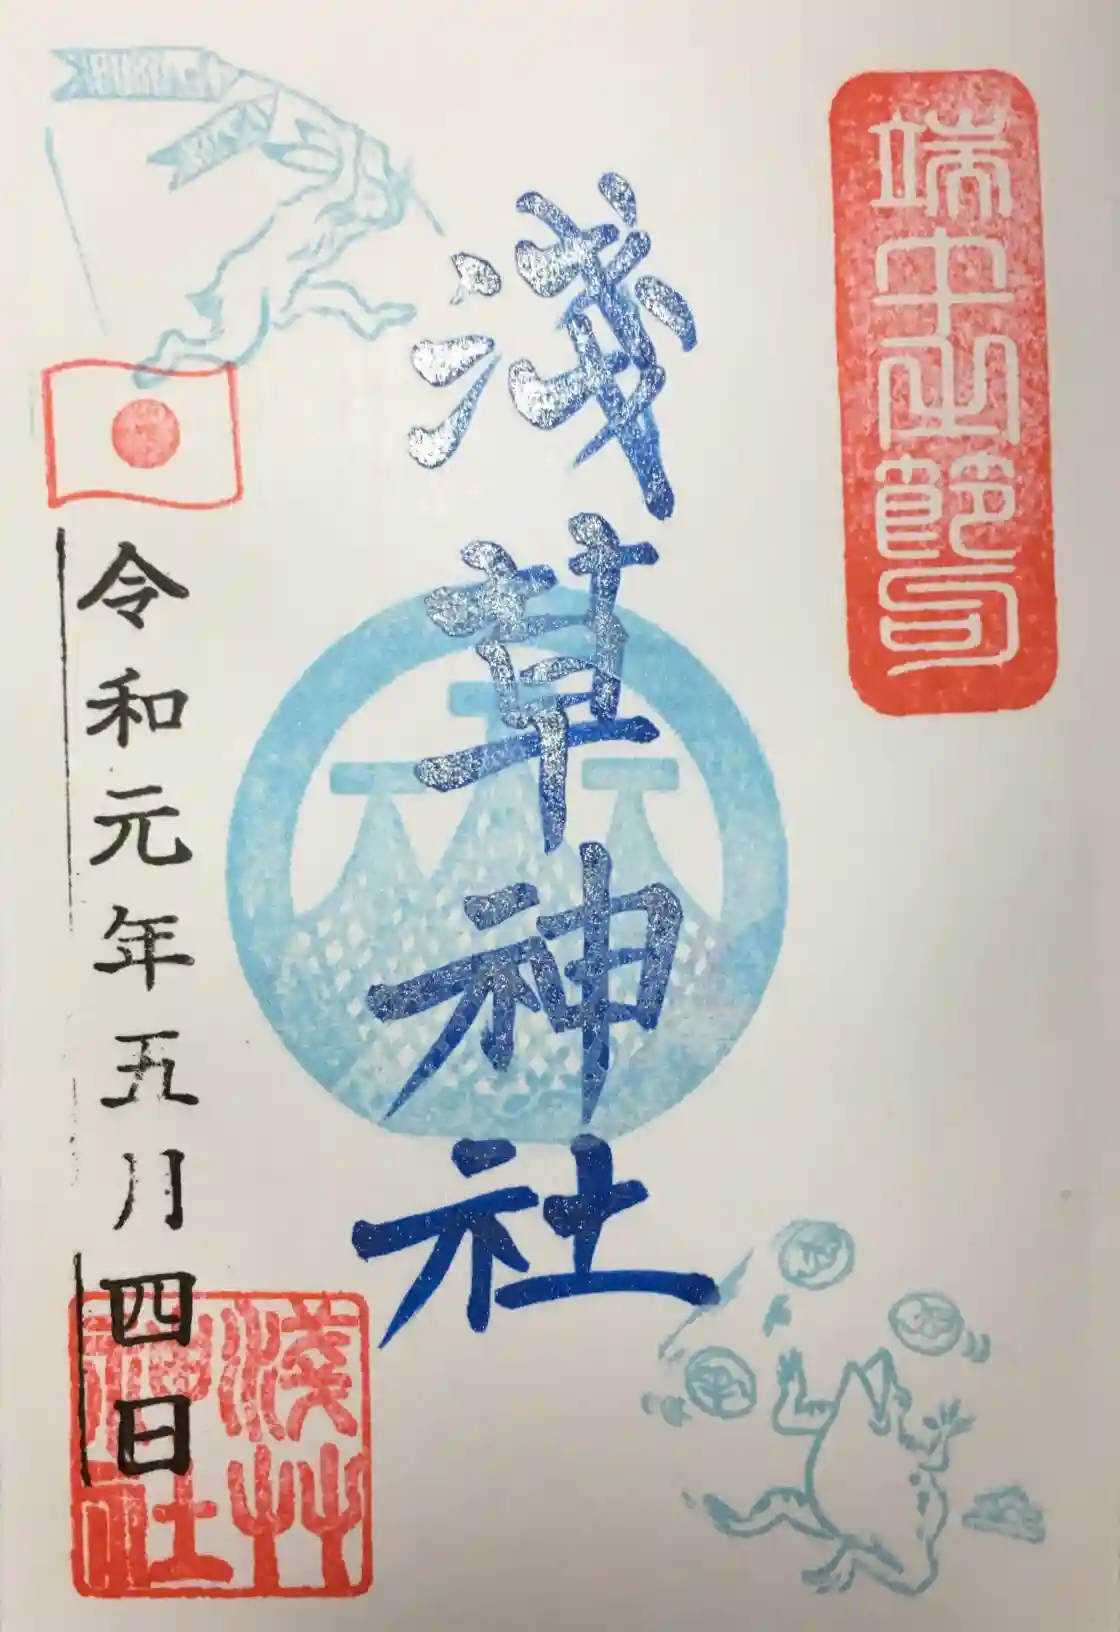 端午之節句
浅草神社
令和元年五月四日
淺艸
神社